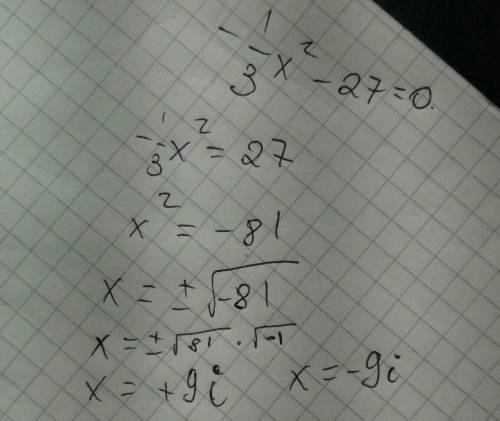 -1/3 x² - 27 = 0
-1/3 x² = 27
x² = -81
x = ±√-81
x = ±√81 · √-1
x = +9i x = -9i